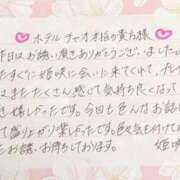 ホテルチャオ本指の貴方様
昨日はお誘い頂きありがとうございました。
たすぐに姫咲に会いに来てくれて、プレイ
はまたたくさん感じて気持ち良くなって
き嬉しかったです。今回も色んなお話
て盛り上がり楽しかったです。
たお誘い、お待ちしております。
姫咲